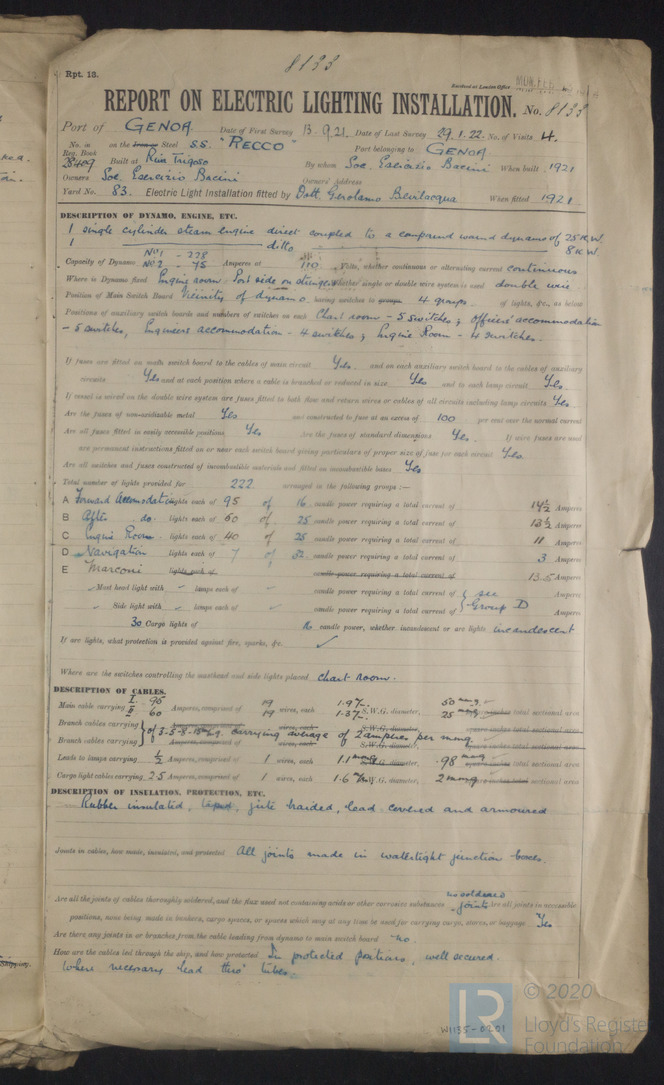 8133
Rpt. 13.
Received at London Office
REPORT ON ELECTRIC LIGHTING INSTALLATION. No. 8133
Port of GENOA Date of First Survey 13.9.21. Date of Last Survey 29.1.22. No. of Visits 4.
No. in Reg. Book on the Iron or Steel S.S. "RECCO" Port belonging to GENOA
Built at Riva Trigoso By whom Soc. Esercizio Bacini When built 1921
Owners Soc. Esercizio Bacini Owners' Address
Yard No. 83. Electric Light Installation fitted by Dott. Gerolamo Bevilacqua When fitted 1921
DESCRIPTION OF DYNAMO, ENGINE, ETC.
1 single cylinder steam engine direct coupled to a compound wound dynamo of 25 K.W.
1 ditto 8 K.W.
Capacity of Dynamo No 1 - 228 No 2 - 75 Amperes at 110 Volts, whether continuous or alternating current continuous
Where is Dynamo fixed Engine room - Port side on whether single or double wire system is used double wire
Position of Main Switch Board Vicinity of dynamo having switches to groups 4 groups of lights, &c., as below
Positions of auxiliary switch boards and numbers of switches on each Chart room - 5 switches; Officers' accommodation
- 5 switches, Engineers accommodation - 4 switches; Engine Room - 4 switches.
If fuses are fitted on main switch board to the cables of main circuit Yes. and on each auxiliary switch board to the cables of auxiliary
circuits Yes and at each position where a cable is branched or reduced in size Yes and to each lamp circuit Yes.
If vessel is wired on the double wire system are fuses fitted to both flow and return wires or cables of all circuits including lamp circuits Yes.
Are the fuses of non-oxidizable metal Yes and constructed to fuse at an excess of 100 per cent over the normal current
Are all fuses fitted in easily accessible positions Yes Are the fuses of standard dimensions Yes. If wire fuses are used
are permanent instructions fitted on or near each switch board giving particulars of proper size of fuse for each circuit Yes
Are all switches and fuses constructed of incombustible materials and fitted on incombustible bases Yes
Total number of lights provided for 222 arranged in the following groups :—
A Forward Accomodation lights each of 95 of 16 candle power requiring a total current of 14½ Amperes
B After do. lights each of 60 of 25 candle power requiring a total current of 13½ Amperes
C Engine Room lights each of 40 of 25 candle power requiring a total current of 11 Amperes
D Navigation lights each of 7 of 32 candle power requiring a total current of 3 Amperes
E Marconi lights each of candle power requiring a total current of 13.5 Amperes
Mast head light with lamps each of candle power requiring a total current of see Amperes
Side light with lamps each of candle power requiring a total current of Group D Amperes
30 Cargo lights of 16 candle power, whether incandescent or arc lights incandescent
If arc lights, what protection is provided against fire, sparks, &c.
Where are the switches controlling the masthead and side lights placed chart room.
DESCRIPTION OF CABLES.
Main cable carrying I. 95 Amperes, comprised of 19 wires, each 1.97 S.W.G. diameter, 50 mmq. square inches total sectional area
II 60 19 1.37 25
Branch cables carrying Amperes, comprised of wires, each S.W.G. diameter, square inches total sectional area
carrying average of 2 amperes per mmq
Branch cables carrying Amperes, comprised of wires, each S.W.G. diameter, square inches total sectional area
Leads to lamps carrying ½ Amperes, comprised of 1 wires, each 1.1 S.W.G. diameter, .98 mmq square inches total sectional area
Cargo light cables carrying 2.5 Amperes, comprised of 1 wires, each 1.6 S.W.G. diameter, 2 mmq square inches total sectional area
DESCRIPTION OF INSULATION, PROTECTION, ETC.
Rubber insulated, taped, jute braided, lead covered and armoured
Joints in cables, how made, insulated, and protected All joints made in watertight junction boxes.
Are all the joints of cables thoroughly soldered, and the flux used not containing acids or other corrosive substances no soldered joints Are all joints in accessible
positions, none being made in bunkers, cargo spaces, or spaces which may at any time be used for carrying cargo, stores, or baggage Yes
Are there any joints in or branches from the cable leading from dynamo to main switch board no.
How are the cables led through the ship, and how protected In protected positions, well secured.
Where necessary lead thro' tubes.
W1135-0201
LR
© 2020
Lloyd's Register
Foundation